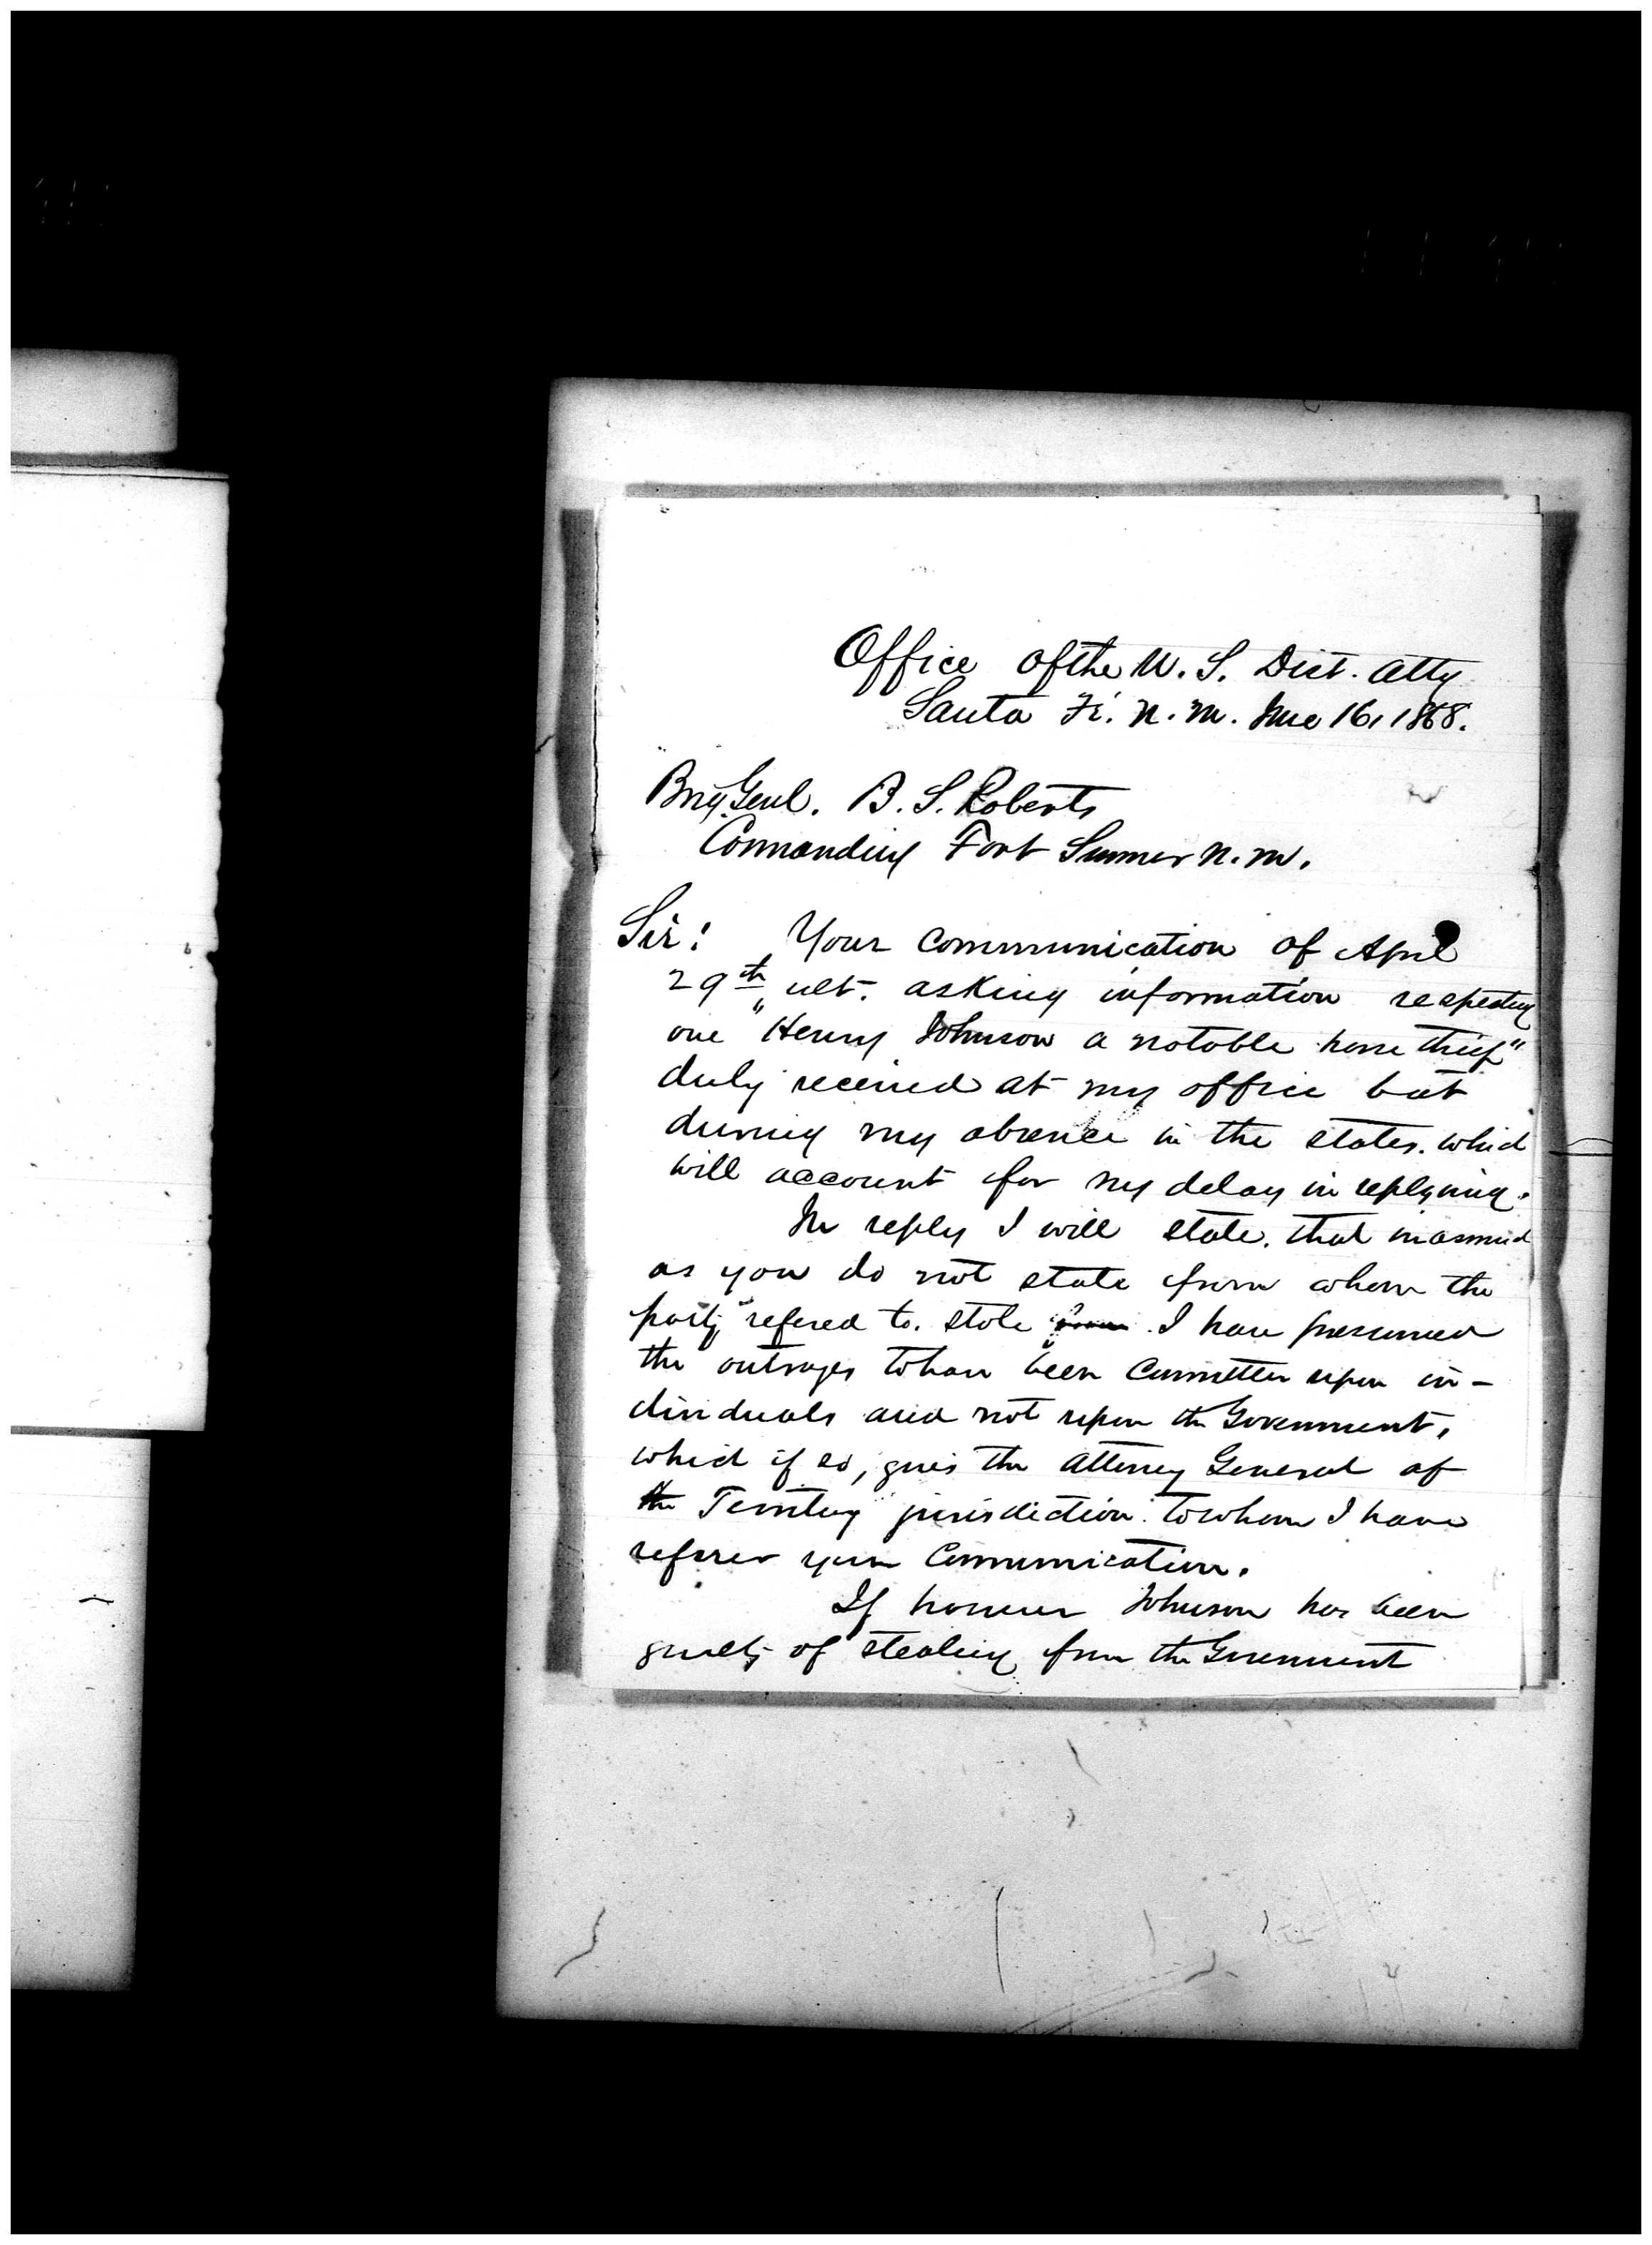 Office of the U. S. Dist. Atty
Santa Fé. N. M. June 16, 1868.
Brig Genl. B. S. Roberts
Commanding Fort Sumner N. M.
Sir: Your communication of April
29th ult. asking information respecting
one "Henry Johnson a notable horse thief"
duly received at my office but
during my absence in the states. which
will account for my delay in replying.
In reply I will state. that inasmuch
as you do not state from whom the
party refered to. stole from . I have presumed
the outrages to have been committed upon in-
dividuals and not upon the Government,
which if so, gives the Attorney General of
the Territory jurisdiction. to whom I have
referred your communication.
If however Johnson has been
guilty of stealing from the Government